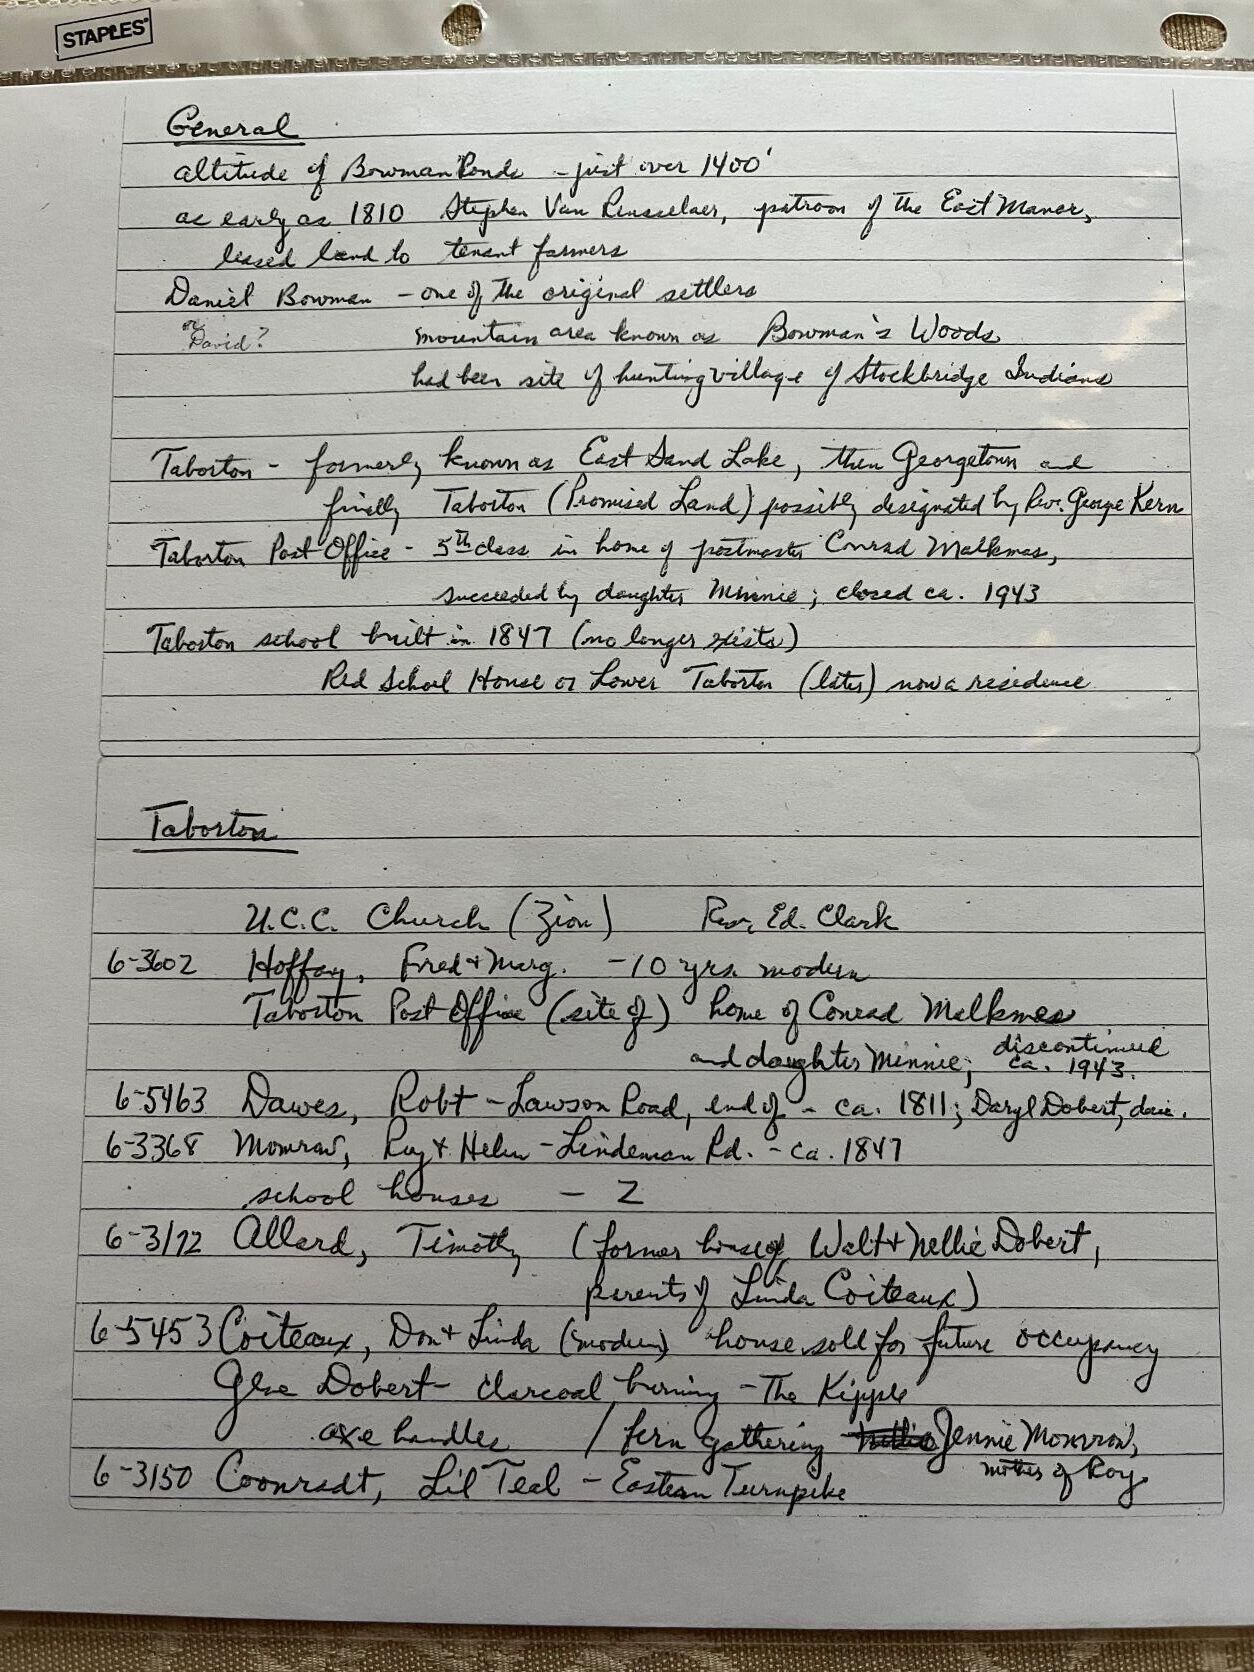 STAPLES
General
altitude of Bowman Ponds - just over 1400'
as early as 1810 Stephen Van Rensselaer, patroon of the East Manor,
leased land to tenant farmers
Daniel Bowman - one of the original settlers
or David? mountain area known as Bowman's Woods
had been site of hunting village of Stockbridge Indians
Taborton - formerly known as East Sand Lake, then Georgetown and
finally Taborton (Promised Land) possibly designated by Rev. George Kern
Taborton Post Office - 5th class in home of postmaster Conrad Malkmas,
succeeded by daughter Minnie; closed ca. 1943
Taborton school built in 1847 (no longer exists)
Red School House or Lower Taborton (later) now a residence
Taborton
U.C.C. Church (Zion) Rev. Ed. Clark
6-3602 Hoffay, Fred + Marg. - 10 yrs. modern
Taborton Post Office (site of) home of Conrad Malkmas
and daughter Minnie; discontinued ca. 1943.
6-5463 Dawes, Robt - Lawson Road, end of - ca. 1811; Daryl Dobert,
6-3368 Momrow, Roy + Helen - Lindeman Rd. - ca. 1847
school houses - 2
6-3172 Allard, Timothy (former house of Walt + Nellie Dobert,
parents of Linda Coiteaux)
6-5453 Coiteaux, Don + Linda (modern) house sold for future occupancy
Dobert - charcoal burning - The Kipple
axe handles / fern gathering Jennie Momrow,
mother of Roy
6-3150 Coonradt, Lil Teal - Eastern Turnpike